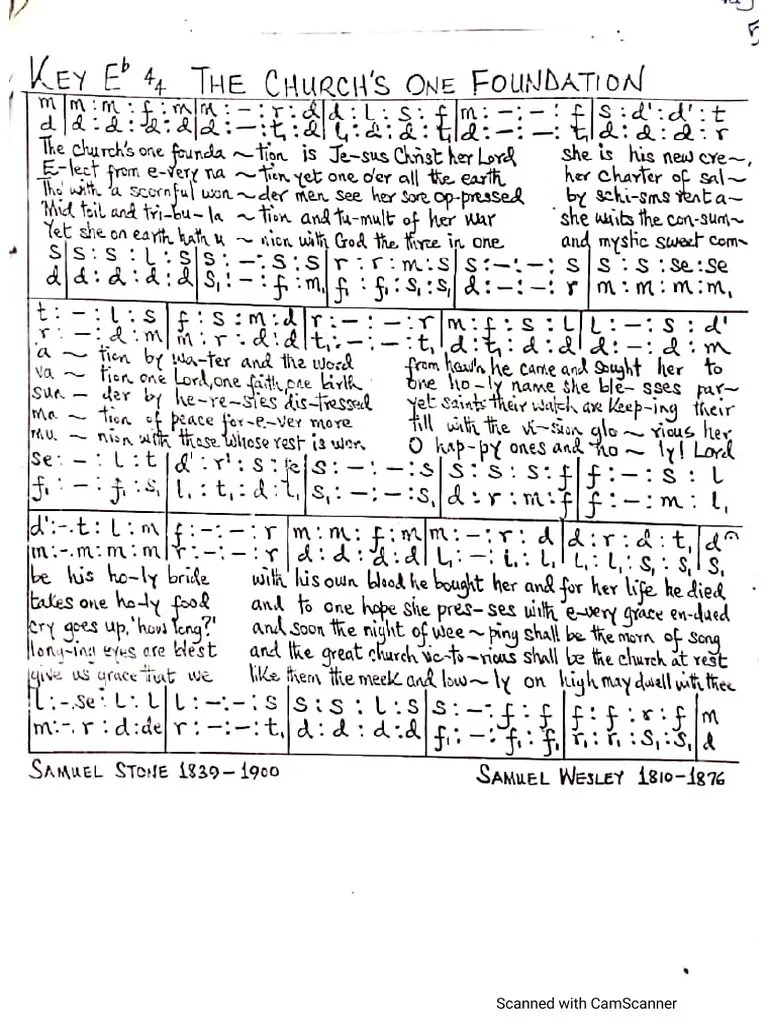 5
KEY E♭ 4/4 THE CHURCH'S ONE FOUNDATION
m | m : m : f : m | m : – : r : d | d : l : s : f | m : – : – : f | s : d' : d' : t
d | d : d : d : d | d : – : t, : d | l, : d : d : t, | d : – : – : t, | d : d : d : r
The church's one founda ~ tion is Je-sus Christ her Lord she is his new cre~,
E-lect from e-very na ~ tion yet one o'er all the earth her charter of sal~
Tho' with a scornful won ~ der men see her sore op-pressed by schi-sms rent a~
Mid toil and tri-bu-la ~ tion and tu-mult of her war she waits the con-sum~
Yet she on earth hath u ~ nion with God the three in one and mystic sweet com~
s | s : s : l : s | s : – : s : s | r : r : m : s | s : – : – : s | s : s : se : se
d | d : d : d : d | s, : – : f, : m, | f, : f, : s, : s, | d : – : – : r | m : m : m : m,
t : – : l : s | f : s : m : d | r : – : – : r | m : f : s : l | l : – : s : d'
r : – : d : m | m : r : d : d | t, : – : – : t, | d : t, : d : d | d : – : d : m
a ~ tion by wa-ter and the word from heav'n he came and sought her to
va ~ tion one Lord, one faith, one birth one ho-ly name she ble-sses par~
sun ~ der by he-re-sies dis-tressed yet saints their watch are keep-ing their
ma ~ tion of peace for-e-ver more till with the vi-sion glo ~ rious her
mu ~ nion with those whose rest is won O hap-py ones and ho ~ ly! Lord
se : – : l : t | d' : r' : s : fe | s : – : – : s | s : s : s : f | f : – : s : l
f, : – : f, : s, | l, : t, : d : l, | s, : – : – : s, | d : r : m : f | f : – : m : l,
d' : -. t : l : m | f : – : – : r | m : m : f : m | m : – : r : d | d : r : d : t, | d
m : -. m : m : m | r : – : – : r | d : d : d : d | l, : – : l, : l, | l, : l, : s, : s, | s,
be his ho-ly bride with his own blood he bought her and for her life he died
takes one ho-ly food and to one hope she pres-ses with e-very grace en-dued
cry goes up, 'how long?' and soon the night of wee ~ ping shall be the morn of song
long-ing eyes are blest and the great church vic-to-rious shall be the church at rest
give us grace that we like them the meek and low ~ ly on high may dwell with thee
l : -. se : l : l | l : – : – : s | s : s : l : s | s : – : f : f | f : f : r : f | m
m : -. r : d : de | r : – : – : t, | d : d : d : d | f, : – : f, : f, | r, : r, : s, : s, | d
SAMUEL STONE 1839–1900 SAMUEL WESLEY 1810–1876
Scanned with CamScanner